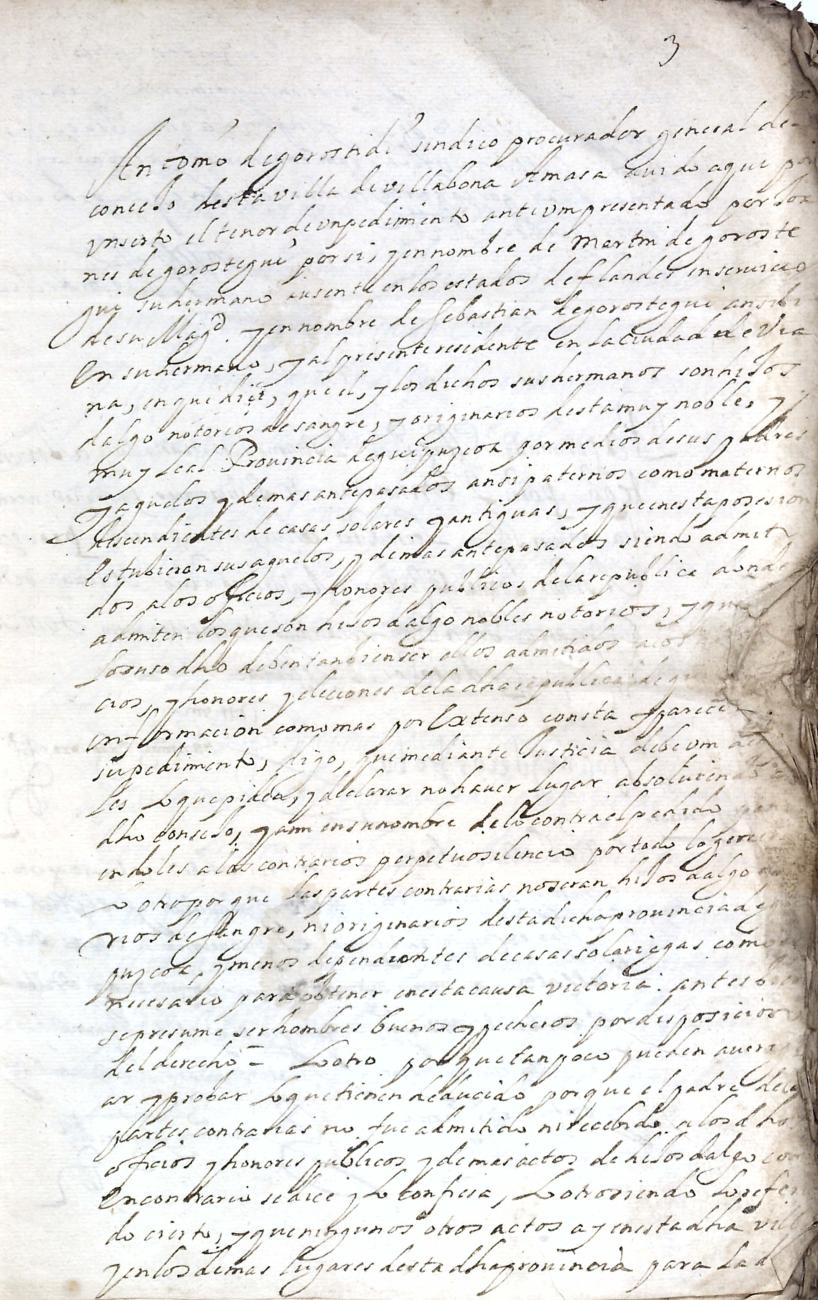 3
Antonio de gorostidi sindico procurador general del
concejo desta villa de villabona Amasa avido aqui por
ynserto el tenor de un pedimento ante vm presentado por Joa
nes de gorostegui por si, y en nombre de Martin de goroste
gui su hermano ausente en los estados de flandes en servicio
de su Magd. y en nombre de Sebastian de gorostegui ansibi
en su hermano, y al presente residente en la ciudad de Via
na, en que dice, que el, y los dichos sus hermanos son hijos
dalgo notorios de sangre, y originarios desta muy noble, y
muy leal Provincia de guipuzcoa por medios de sus padres
y aguelos y demas antepasados ansi paternos como maternos
descendientes de casas solares y antiguas, y que en esta posesion
estubieron sus aguelos, y demas antepasados siendo admiti
dos a los oficios, y honores publicos de la republica donde
admiten los que son hijos dalgo nobles notorios, y que
lo suso dho deben tanbien ser ellos admitidos a los
cios, y honores y eleciones de la dha republica de que
informacion como mas por extenso consta y parece
su pedimento, digo, que mediante Justicia debe vm
les lo que piden, y declarar no haver lugar absolviendo a
dho consejo, y a mi en su nombre de lo contra el pedido
endoles a los contrarios perpetuo silencio por todo lo general
Lo otro por que las partes contrarias no seran hijos dalgo
rios de sangre, ni originarios desta dicha provincia de
puzcoa, y menos dependientes de casas solariegas como
necesario para obtener en esta causa victoria. antes
se presume ser hombres buenos y pecheros por disposicion
del derecho = Lo otro porque tanpoco pueden averigu
ar y probar lo que tienen deducido porque el padre de las
partes contrarias no fue admitido ni recebido a los dhos
oficios y honores publicos y demas actos de hijos dalgo como
en contrario se dice y lo confiesa, Lo otro siendo lo referi
do cierto, y que ningunos otros actos ay en esta dha villa
y en los demas lugares desta dha provincia para la